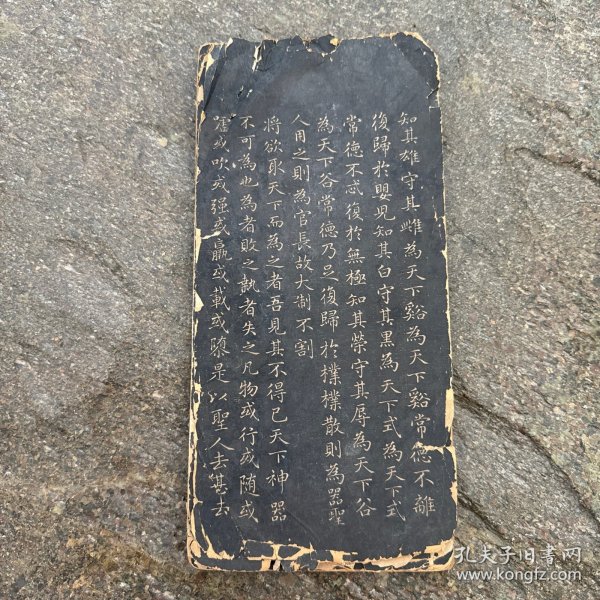 知其雄守其雌為天下谿為天下谿常德不離
復歸於嬰兒知其白守其黑為天下式為天下式
常德不忒復於無極知其榮守其辱為天下谷
為天下谷常德乃足復歸於樸樸散則為器聖
人用之則為官長故大制不割
將欲取天下而為之者吾見其不得已天下神器
不可為也為者敗之執者失之凡物或行或隨或
或吹或强或羸或載或隳是以聖人去甚去
孔夫子旧書网
www.kongfz.com